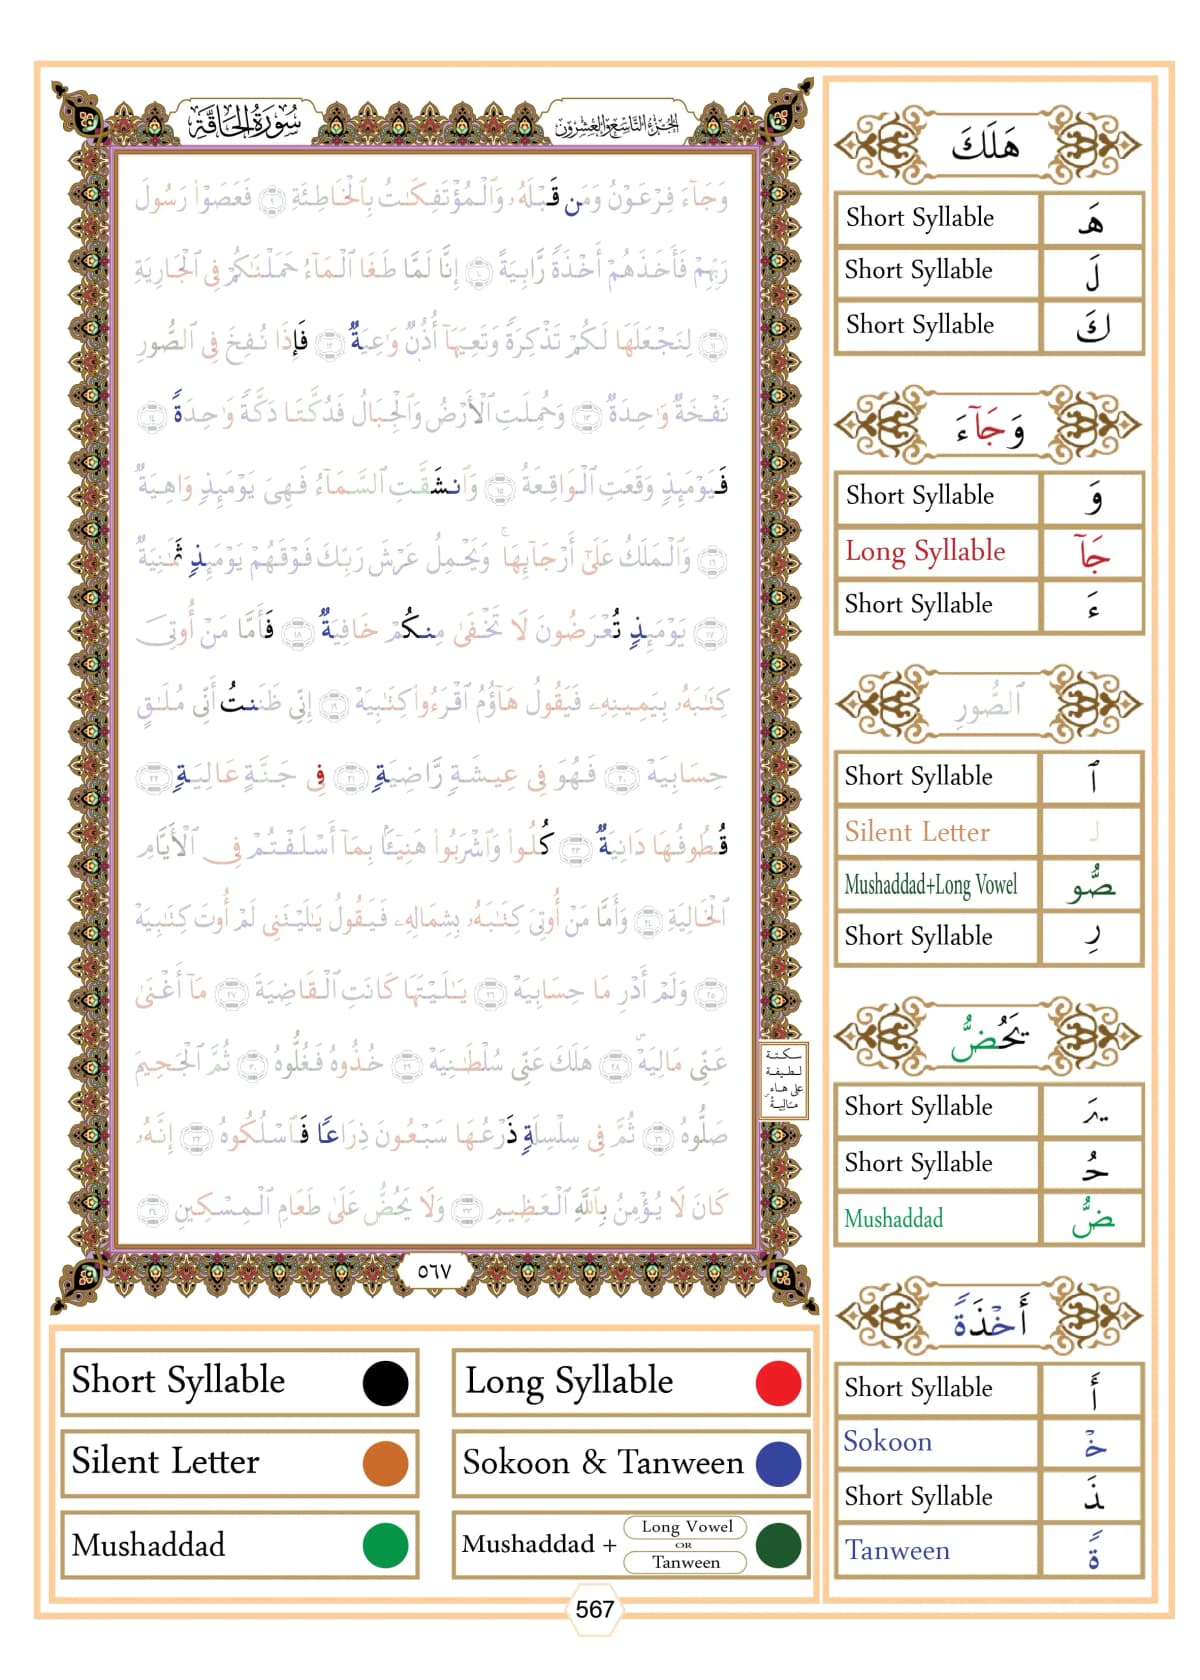 سُورَةُ الحَاقَّةِ
الجُزْءُ التَّاسِعُ وَالعِشْرُونَ
وَجَآءَ فِرْعَوْنُ وَمَن قَبْلَهُۥ وَٱلْمُؤْتَفِكَٰتُ بِٱلْخَاطِئَةِ ٩ فَعَصَوْا۟ رَسُولَ
رَبِّهِمْ فَأَخَذَهُمْ أَخْذَةً رَّابِيَةً ١٠ إِنَّا لَمَّا طَغَا ٱلْمَآءُ حَمَلْنَٰكُمْ فِى ٱلْجَارِيَةِ
١١ لِنَجْعَلَهَا لَكُمْ تَذْكِرَةً وَتَعِيَهَآ أُذُنٌ وَٰعِيَةٌ ١٢ فَإِذَا نُفِخَ فِى ٱلصُّورِ
نَفْخَةٌ وَٰحِدَةٌ ١٣ وَحُمِلَتِ ٱلْأَرْضُ وَٱلْجِبَالُ فَدُكَّتَا دَكَّةً وَٰحِدَةً ١٤
فَيَوْمَئِذٍ وَقَعَتِ ٱلْوَاقِعَةُ ١٥ وَٱنشَقَّتِ ٱلسَّمَآءُ فَهِىَ يَوْمَئِذٍ وَاهِيَةٌ
١٦ وَٱلْمَلَكُ عَلَىٰٓ أَرْجَآئِهَا ۚ وَيَحْمِلُ عَرْشَ رَبِّكَ فَوْقَهُمْ يَوْمَئِذٍ ثَمَٰنِيَةٌ
١٧ يَوْمَئِذٍ تُعْرَضُونَ لَا تَخْفَىٰ مِنكُمْ خَافِيَةٌ ١٨ فَأَمَّا مَنْ أُوتِىَ
كِتَٰبَهُۥ بِيَمِينِهِۦ فَيَقُولُ هَآؤُمُ ٱقْرَءُوا۟ كِتَٰبِيَهْ ١٩ إِنِّى ظَنَنتُ أَنِّى مُلَٰقٍ
حِسَابِيَهْ ٢٠ فَهُوَ فِى عِيشَةٍ رَّاضِيَةٍ ٢١ فِى جَنَّةٍ عَالِيَةٍ ٢٢
قُطُوفُهَا دَانِيَةٌ ٢٣ كُلُوا۟ وَٱشْرَبُوا۟ هَنِيٓـًٔۢا بِمَآ أَسْلَفْتُمْ فِى ٱلْأَيَّامِ
ٱلْخَالِيَةِ ٢٤ وَأَمَّا مَنْ أُوتِىَ كِتَٰبَهُۥ بِشِمَالِهِۦ فَيَقُولُ يَٰلَيْتَنِى لَمْ أُوتَ كِتَٰبِيَهْ
٢٥ وَلَمْ أَدْرِ مَا حِسَابِيَهْ ٢٦ يَٰلَيْتَهَا كَانَتِ ٱلْقَاضِيَةَ ٢٧ مَآ أَغْنَىٰ
عَنِّى مَالِيَهْ ۜ ٢٨ هَلَكَ عَنِّى سُلْطَٰنِيَهْ ٢٩ خُذُوهُ فَغُلُّوهُ ٣٠ ثُمَّ ٱلْجَحِيمَ
صَلُّوهُ ٣١ ثُمَّ فِى سِلْسِلَةٍ ذَرْعُهَا سَبْعُونَ ذِرَاعًا فَٱسْلُكُوهُ ٣٢ إِنَّهُۥ
كَانَ لَا يُؤْمِنُ بِٱللَّهِ ٱلْعَظِيمِ ٣٣ وَلَا يَحُضُّ عَلَىٰ طَعَامِ ٱلْمِسْكِينِ ٣٤
٥٦٧
سكتة
لطيفة
على هاء
مالية
هَلَكَ
Short Syllable هَ
Short Syllable لَ
Short Syllable كَ
وَجَآءَ
Short Syllable وَ
Long Syllable جَآ
Short Syllable ءَ
ٱلصُّورِ
Short Syllable ٱ
Silent Letter ل
Mushaddad+Long Vowel صُّو
Short Syllable رِ
يَحُضُّ
Short Syllable يَ
Short Syllable حُ
Mushaddad ضُّ
أَخْذَةً
Short Syllable أَ
Sokoon خْ
Short Syllable ذَ
Tanween ةً
Short Syllable
Long Syllable
Silent Letter
Sokoon & Tanween
Mushaddad
Mushaddad + Long Vowel OR Tanween
567